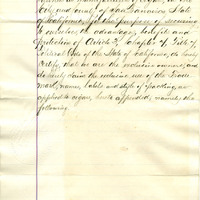 City and County of San Francisco, State
of California, for the purpose of securing
to ourselves the advantages, benefits and
protection of Article 3, Chapter 7, Title 7,
Political Code of the State of California, do hereby
Certify, that we are the exclusive owners, and
do hereby claim the exclusive use of the Trade
mark, name, labels and style of packing, as
applied to cigars, hereto appended, namely the
following.